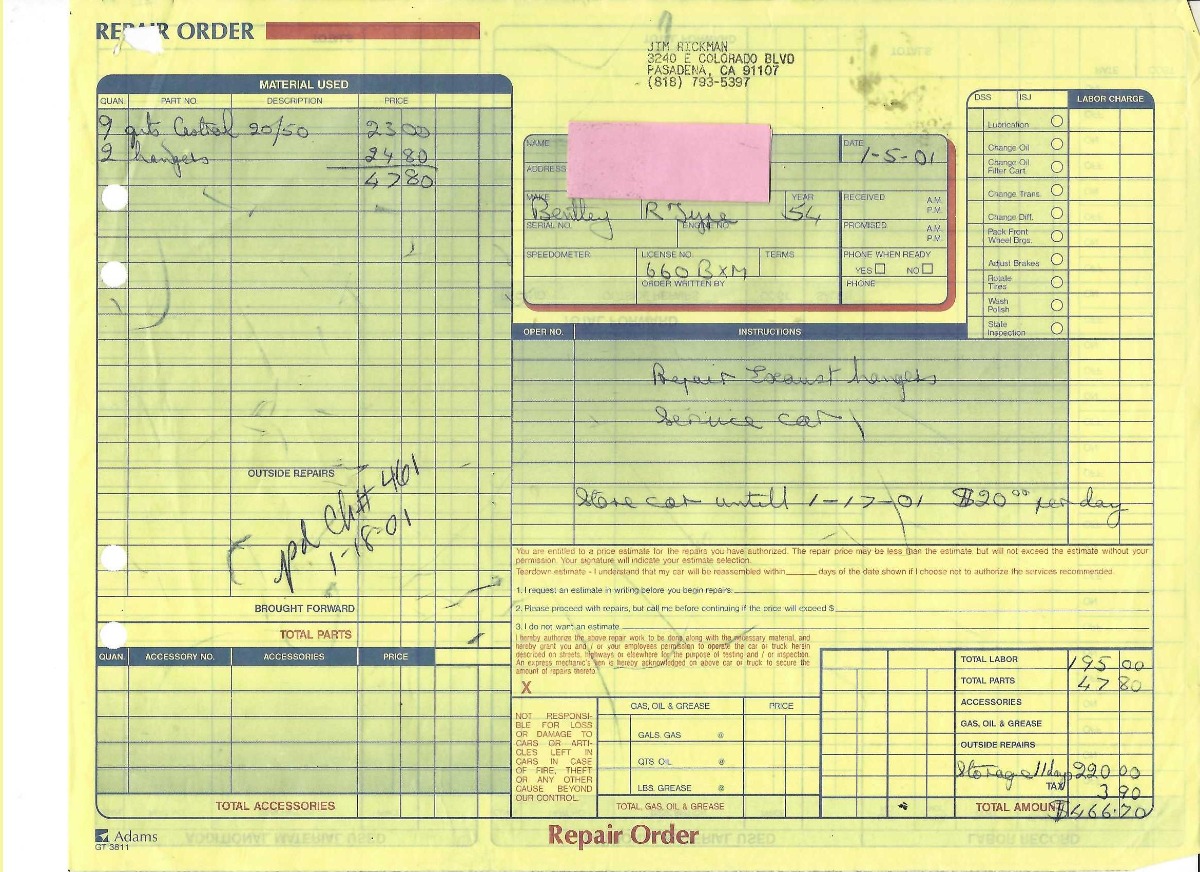 REPAIR ORDER
JIM RICKMAN
3240 E COLORADO BLVD
PASADENA, CA 91107
(818) 793-5397
MATERIAL USED
QUAN. PART NO. DESCRIPTION PRICE
9 qrts Castrol 20/50 23 00
2 hangers 24 80
47 80
OUTSIDE REPAIRS
pd Ch# 461
1-18-01
BROUGHT FORWARD
TOTAL PARTS
QUAN. ACCESSORY NO. ACCESSORIES PRICE
TOTAL ACCESSORIES
NAME DATE
1-5-01
ADDRESS
MAKE YEAR RECEIVED A.M.
P.M.
Bentley R Type 54
SERIAL NO. ENGINE NO. PROMISED A.M.
P.M.
SPEEDOMETER LICENSE NO. TERMS PHONE WHEN READY
660 BXM YES NO
ORDER WRITTEN BY PHONE
DSS ISJ LABOR CHARGE
Lubrication
Change Oil
Change Oil
Filter Cart.
Change Trans.
Change Diff.
Pack Front
Wheel Brgs.
Adjust Brakes
Rotate
Tires
Wash
Polish
State
Inspection
OPER NO. INSTRUCTIONS
Repair Exaust hangers
Service car
Store car untill 1-17-01 $20 00 per day
You are entitled to a price estimate for the repairs you have authorized. The repair price may be less than the estimate, but will not exceed the estimate without your
permission. Your signature will indicate your estimate selection.
Teardown estimate - I understand that my car will be reassembled within______ days of the date shown if I choose not to authorize the services recommended.
1. I request an estimate in writing before you begin repairs.
2. Please proceed with repairs, but call me before continuing if the price will exceed $
3. I do not want an estimate
I hereby authorize the above repair work to be done along with the necessary material, and
hereby grant you and / or your employees permission to operate the car or truck herein
described on streets, highways or elsewhere for the purpose of testing and / or inspection.
An express mechanic's lien is hereby acknowledged on above car or truck to secure the
amount of repairs thereto.
X
NOT RESPONSI-
BLE FOR LOSS
OR DAMAGE TO
CARS OR ARTI-
CLES LEFT IN
CARS IN CASE
OF FIRE, THEFT
OR ANY OTHER
CAUSE BEYOND
OUR CONTROL.
GAS, OIL & GREASE PRICE
GALS. GAS @
QTS OIL @
LBS. GREASE @
TOTAL GAS, OIL & GREASE
TOTAL LABOR 195 00
TOTAL PARTS 47 80
ACCESSORIES
GAS, OIL & GREASE
OUTSIDE REPAIRS
Storage 11 days 220 00
TAX 3 90
TOTAL AMOUNT $466.70
Adams
GT 3811
Repair Order